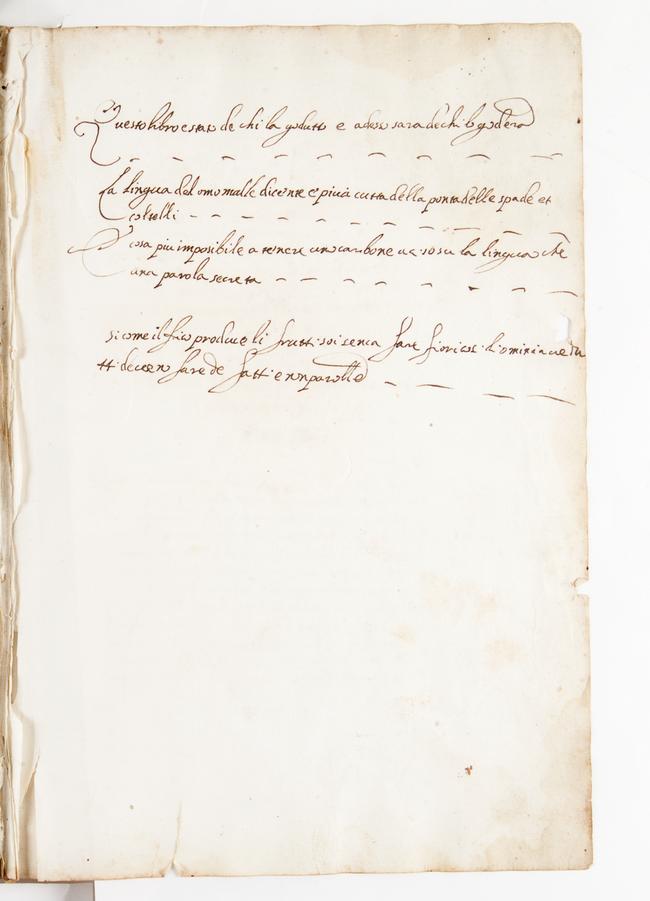 Questo libro e stato de chi la goduto e adesso sara de chi lo godera
La lingua del omo malle dicente e piu a cutta della ponta delle spade et
coltelli
E cosa piu imposibile a tenere uno carbone ac so su la lingua che
una parola secreta
si come il fico produce li frutti soi senca fare fiori cosi li omini
tti deveno fare de fatti e non parolle